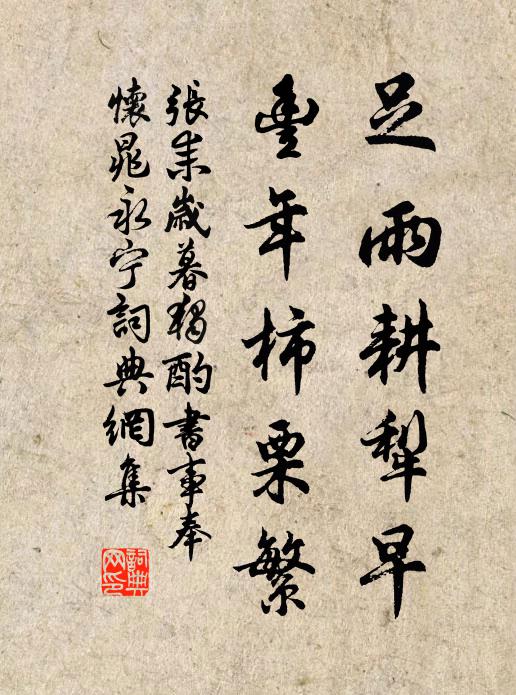 足雨耕犁早
豊年柿栗繁
張耒歲暮獨酌書事奉
懷晁永宁詞典網集
詞典網印